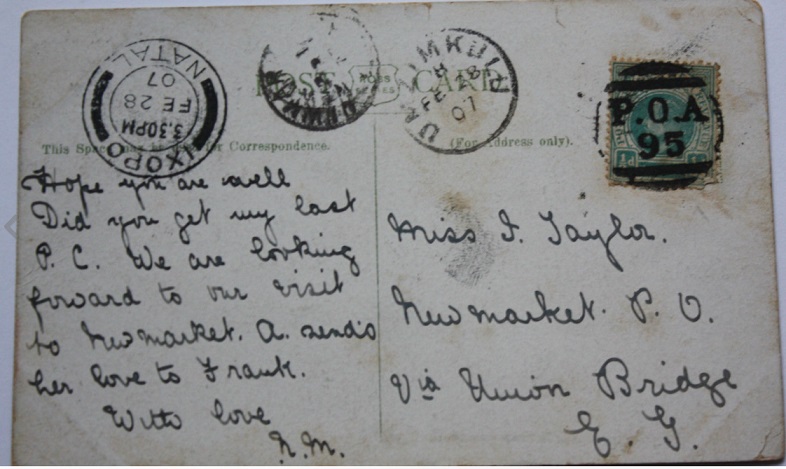 POST CARD
This Space may be used for Correspondence.
(For Address only).
IXOPO
3.30PM
FE 28
07
NATAL
UMZIMKULU
FE 28
07
P.O.A
95
Hope you are well
Did you get my last
P.C. We are looking
forward to our visit
to Newmarket. A. sends
her love to Frank.
With love
N.M.
Miss I. Taylor.
Newmarket. P. O.
Via Union Bridge
E. G.